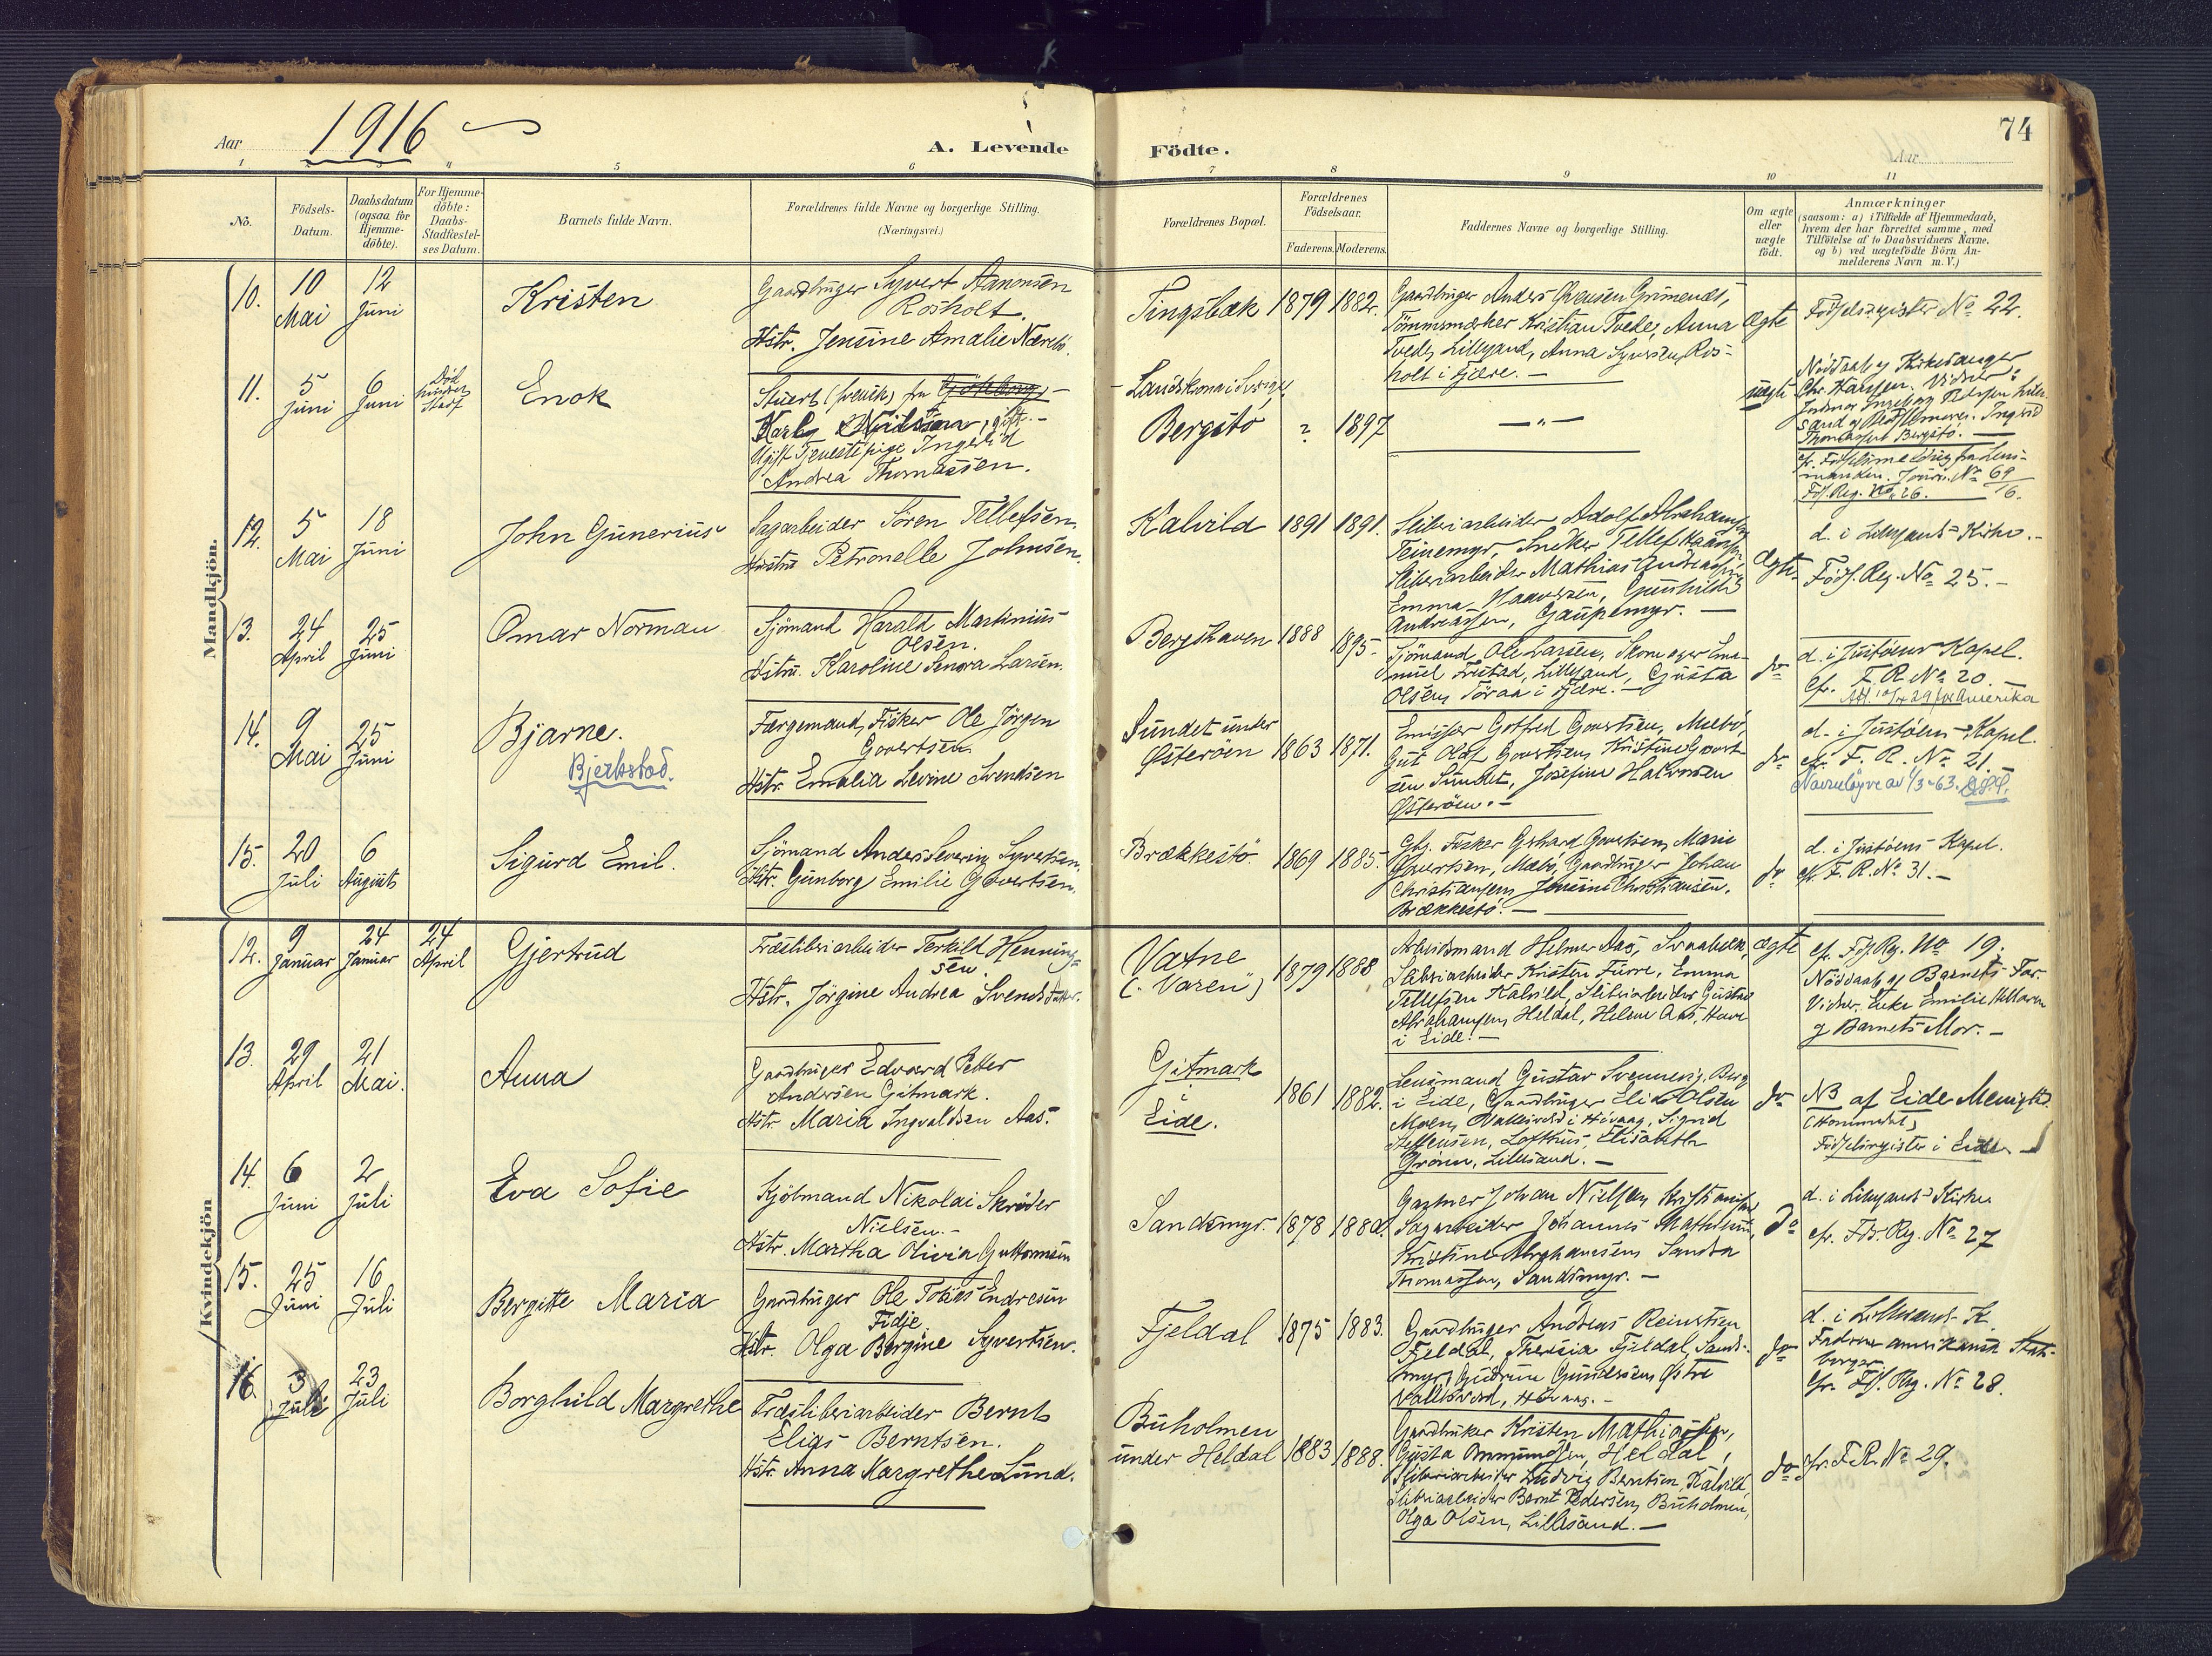 Aar 1916
A. Levende Födte.
74
Aar
1 3 4 5 6 7 8 9 10 11
No.
Födsels-Datum.
Daabsdatum (ogsaa for Hjemme-döbte).
For Hjemme-döbte: Daabs-Stadfæstel-ses Datum.
Barnets fulde Navn.
Forældrenes fulde Navne og borgerlige Stilling.
(Næringsvei.)
Forældrenes Bopæl.
Forældrenes Födselsaar.
Faderens. Moderens.
Faddernes Navne og borgerlige Stilling.
Om ægte eller uægte födt.
Anmærkninger
(saasom: a) i Tilfælde af Hjemmedaab,
hvem der har forrettet samme, med
Tilföielse af to Daabsvidners Navne,
og b) ved uægtefödte Börn An-
melderens Navn m. V.)
Mandkjön.
10. 10 Mai 12 Juni
Kristen
Gaardbruger Syvert Aanonsen
Rosholt.
Hstr. Jensine Amalie
Tingsbæk 1879 1882.
Gaardbruger Anders
Kristian Tvede, Anna
Tvede, Lillesand, Anna Syvertsen Ros-
holt i Fjære. -
ægte
Födselsregister No 22.
11. 5 Juni 6 Juni
Død
Enok
Stuert (svensk) fra Göteborg
gift. -
Ugift Tjenestepige Ingerid
Andrea Thomassen.
Landskrona i Sverige.
Bergstö ? 1897
- " -
uægte
Nöddaab af Kirkesanger
Vidner:
Ingrid
Thomassen Bergstö.
cfr. Födselsmelding fra Lens-
manden. Journ. No 69/16.
Föds. Reg. No. 26.
12. 5 Mai 18 Juni
John Gunerius
Sagarbeider Sören Tellefsen.
Hustru Petronelle Johnsen.
Kalvild 1891 1891.
Sliberiarbeider Adolf Abrahamsen
Teinemyr, Snekker Tellef
Sliberiarbeider Mathias Andreassen,
Emma Gunhilde
Andreassen, Gaupemyr. -
ægte
d. i Lillesands Kirke. -
Föds. Reg. No 25. -
13. 24 April 25 Juni
Omar Norman
Sjömand Harald Martinius
Olsen.
Hstru. Karoline Larsen.
Bergshaven 1888 1895.
Sjömand Ole Larsen,
Lillesand, Gusta
Olsen, i Fjære. -
do
d. i Justöens Kapel.
cfr. F. R. No 20. -
Amerika
14. 9 Mai 25 Juni
Bjarne.
Bjerkstad.
Færgemand, Fisker Ole Jörgen
Govertsen.
Hstr. Emalia Levine Svendsen
Sundet under
Østeröen 1863 1871.
Gotfred Govertsen,
Gut Olaf Govertsen, Kristine Govert-
sen Sundet, Josefine Halvorsen
Østeröen. -
do
d. i Justöens Kapel.
cfr. F. R. No 21.
Navneløyve av 1/3-63.
15. 20 Juli 6 August
Sigurd Emil.
Sjömand Anders Severin Syvertsen.
Hstr. Gunborg Emilie Govertsen.
Brækkestö 1869 1885.
Gbg. Fisker Gerhard Govertsen, Marie
Govertsen, Gaardbruger Johan
Christiansen, Jensine Christiansen.
Brækkestö. -
do
d. i Justöens Kapel.
cfr. F. R. No 31. -
Kvindekjön
12. 9 Januar 24 Januar 24 April
Gjertrud
Træsliberiarbeider Terkild Henning-
sen.
Hstr. Jörgine Andrea Svendsdatter.
Vatne
(" Varen") 1879 1888
Arbeidsmand Helmer Aas,
Sliberiarbeider Kristen Furre, Emma
Tellefsen Kalvild, Sliberiarbeider Gustav
Abrahamsen, Heldal, Helene Aas,
i Eide. -
ægte
cf. Föds. Reg. No 19.
Nöddaab af Barnets Far.
Vidner. Enke Emilie
og Barnets Mor. -
13. 29 April 21 Mai.
Anna
Gaardbruger Edvard Petter
Andersen Gitmark.
Hstr. Maria Ingvaldsen Aas.
Gitmark
i
Eide. 1861 1882.
Lensmand Gustav Svennevig, Berg
i Eide, Gaardbruger Elias Olsen
Moen, Vallesværd i Hövaag, Sigrid
Lofthus, Elisabeth
Grönn, Lillesand. -
do
NB af Eide Menighed
Födselsregister i Eide
14. 6 Juni 2 Juli
Eva Sofie
Sjömand Nikolai Schröder
Nielsen. -
Hstr. Martha Olivia Guttormsen
Sandsmyr. 1878 1880.
Gartner Johan Nielsen, Kristiansand
Sagarbeider Johannes Mathisen,
Kristine Abrahamsen, Sandra
Thomassen, Sandsmyr. -
do
d. i Lillesands Kirke
cfr. Föds. Reg. No 27
15. 25 Juni 16 Juli
Bergitte Maria
Gaardbruger Ole Tobias Endresen
Fidje
Hstr. Olga Bergine Syvertsen.
Fjeldal 1875 1883.
Gaardbruger Andreas Reinertsen
Fjeldal, Theresia Fjeldal, Sands-
myr, Gudrun Gundersen, Østre
Vallesværd, Hövaag. -
do
d. i Lillesands K.
Faderen amerikansk Stats-
borger
cfr. Föds. Reg. No 28.
16. 3 Juli 23 Juli
Borghild Margrethe
Træsliberiarbeider Bernt
Elias Berntsen.
Hstr. Anna Margrethe Lund.
Buholmen
under Heldal 1883 1888.
Gaardbruker Kristen Mathiassen,
Gusta Ommundsen, Heldal,
Sliberiarbeider Ludvig Berntsen, Kalvild,
Sliberiarbeider Bernt Pedersen, Buholmen,
Olga Olsen, Lillesand. -
do
cfr. F. R. No 29.